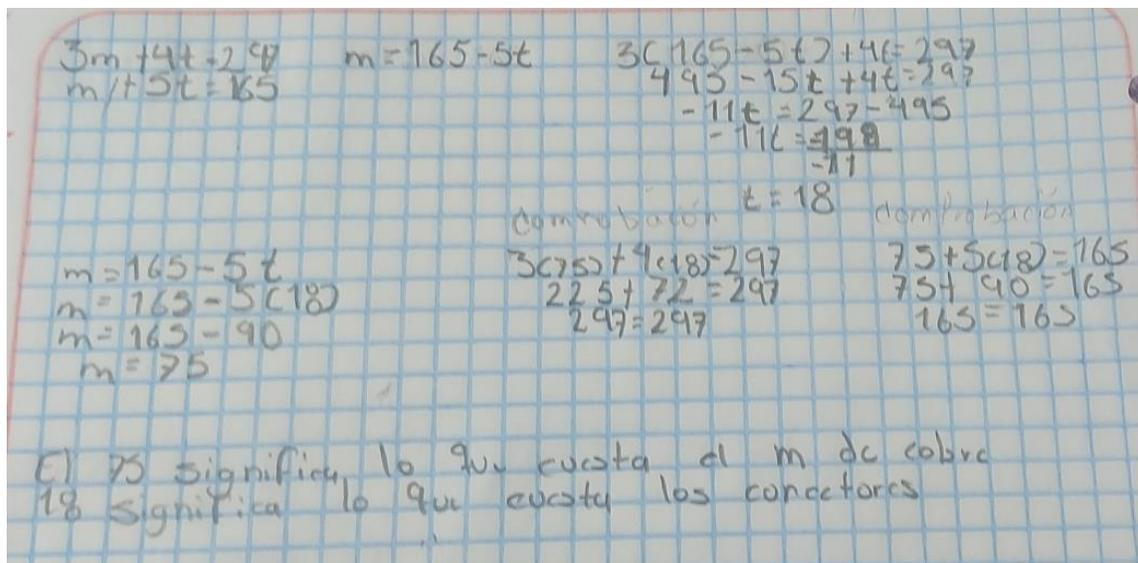 3m + 4t = 297
m + 5t = 165
m = 165 - 5t
3(165 - 5t) + 4t = 297
495 - 15t + 4t = 297
- 11t = 297 - 495
- 11t = -198
-11
t = 18
m = 165 - 5t
m = 165 - 5(18)
m = 165 - 90
m = 75
comprobación
3(75) + 4(18) = 297
225 + 72 = 297
297 = 297
comprobación
75 + 5(18) = 165
75 + 90 = 165
165 = 165
El 75 significa lo que cuesta el m de cobre
18 significa lo que cuesta los conectores